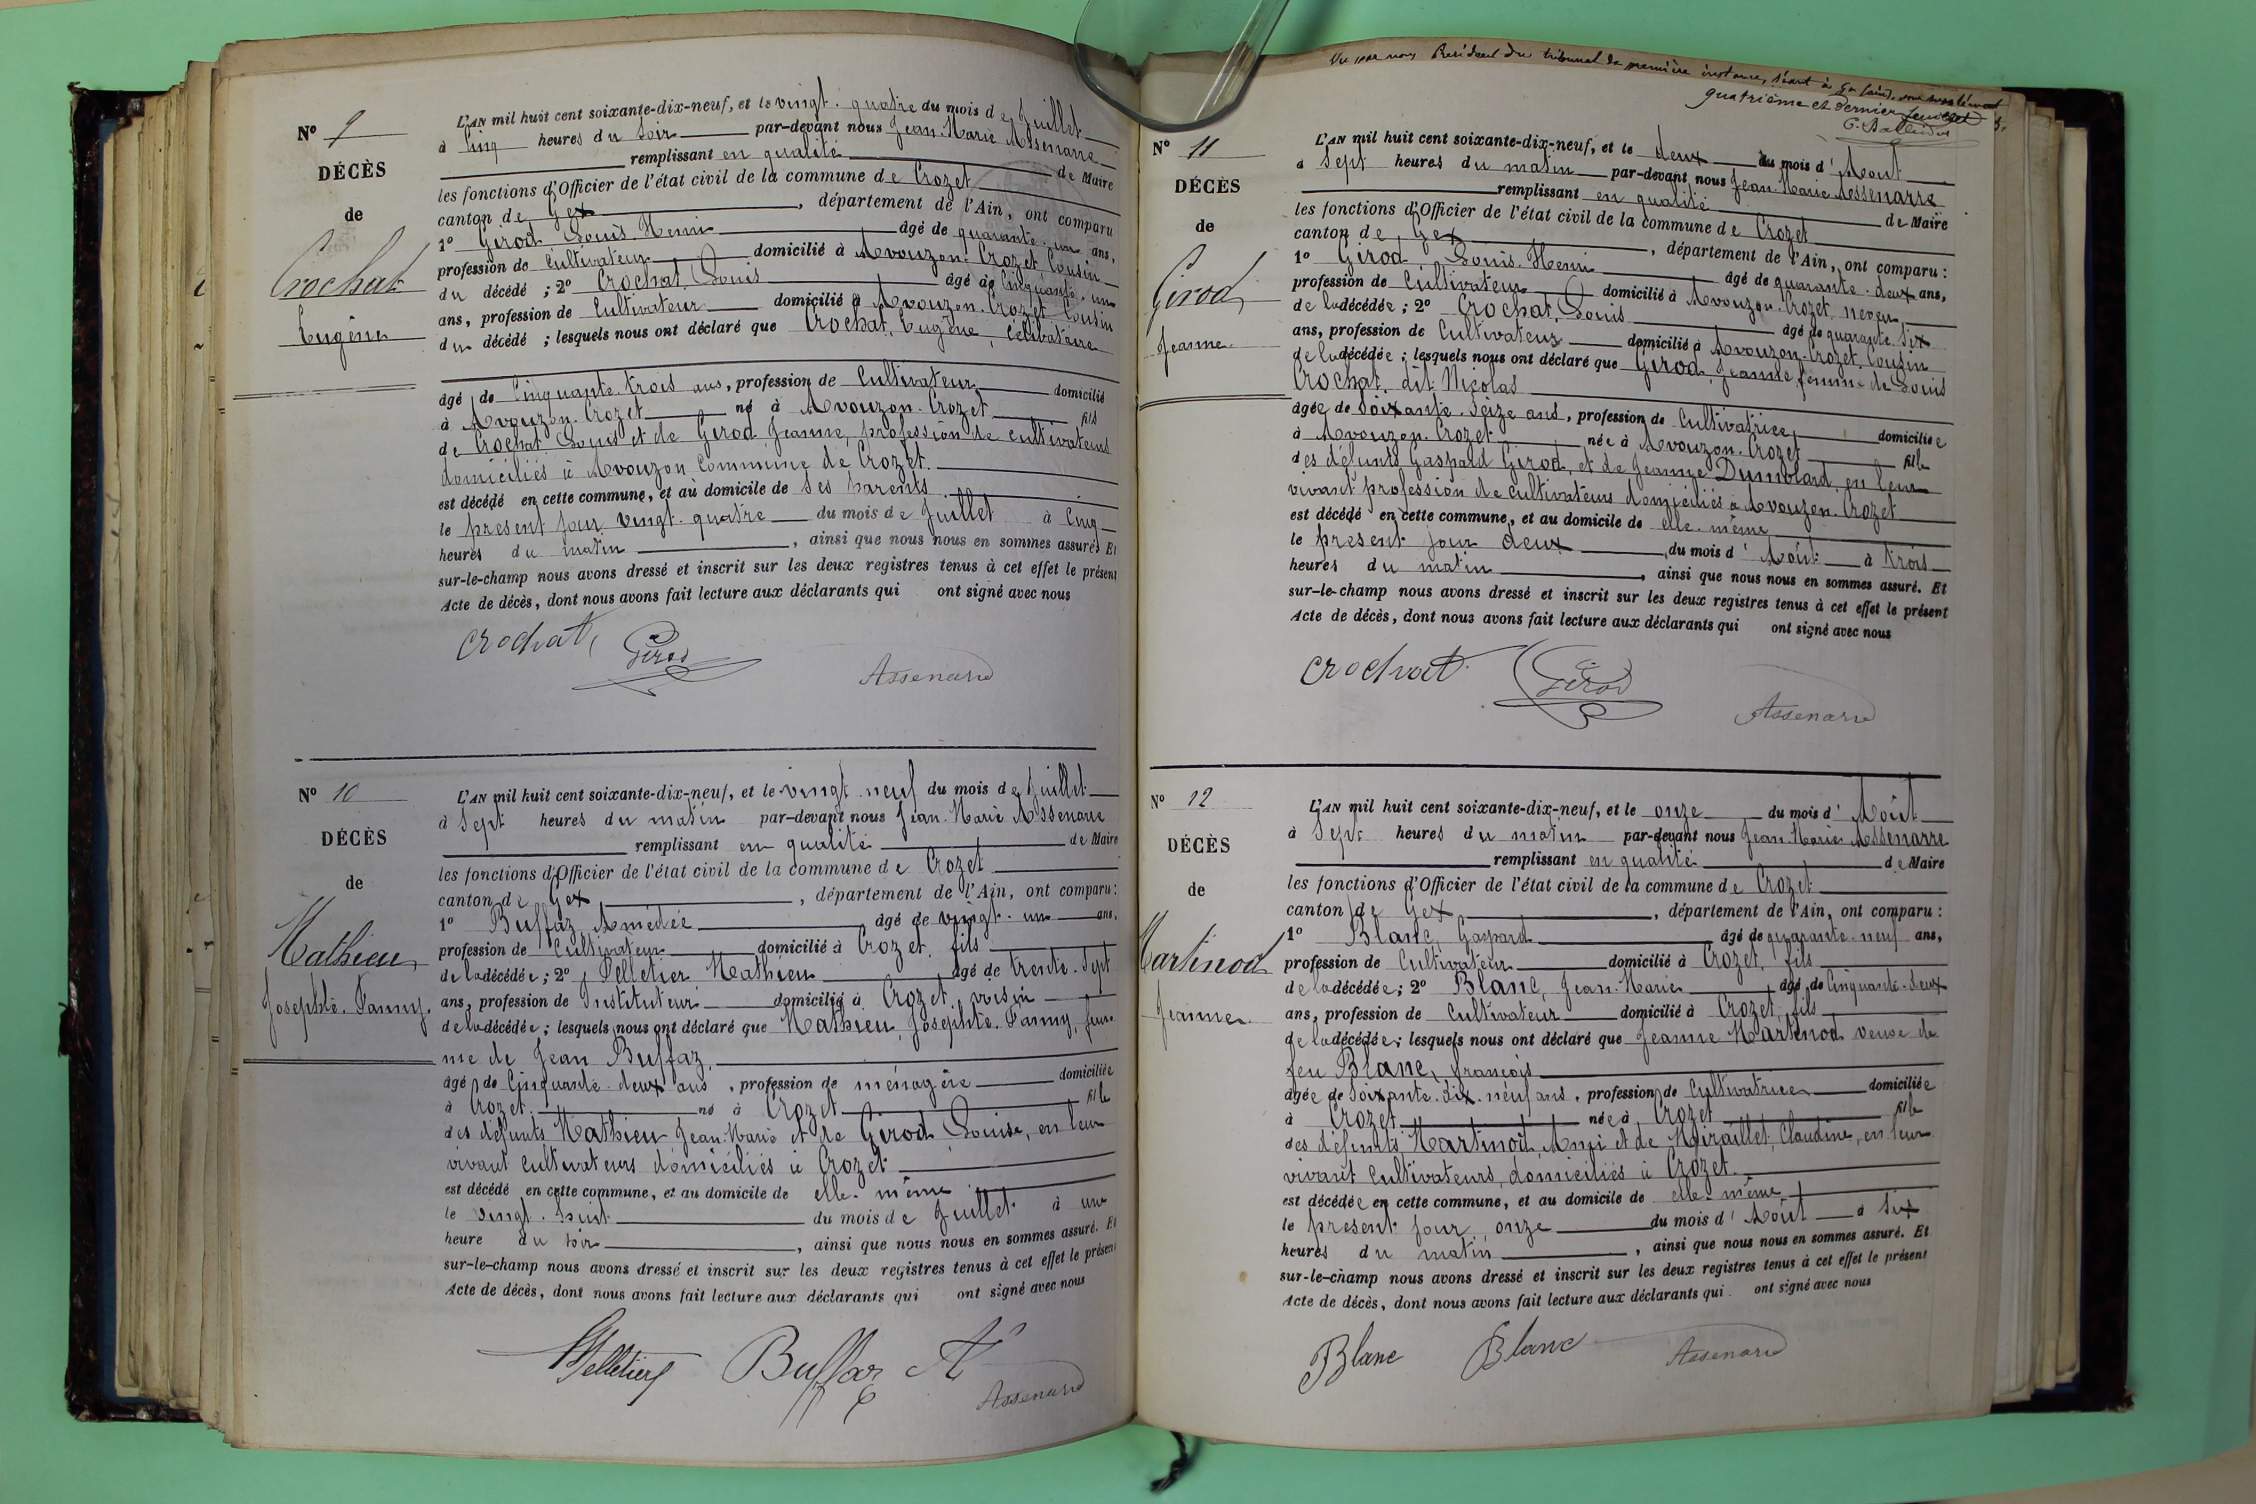 Nº 9
DÉCÈS
de
Crochat
Eugène
L'AN mil huit cent soixante-dix-neuf, et le vingt-quatre du mois de Juillet
à Cinq heures du Soir par-devant nous Jean-Marie Assenare
remplissant en qualité de Maire
les fonctions d'Officier de l'état civil de la commune de Crozet
canton de Gex, département de l'Ain, ont comparu
1º Girod Louis Henri âgé de quarante-un ans,
profession de Cultivateur domicilié à Avouzon-Crozet Cousin
du décédé ; 2º Crochat, Louis âgé de Cinquante-un
ans, profession de Cultivateur domicilié à Avouzon-Crozet Cousin
du décédé ; lesquels nous ont déclaré que Crochat, Eugène, Célibataire
âgé de Cinquante-trois ans, profession de Cultivateur domicilié
à Avouzon-Crozet né à Avouzon-Crozet fils
de Crochat Louis et de Girod Jeanne, profession de cultivateurs
domiciliés à Avouzon Commune de Crozet.
est décédé en cette commune, et au domicile de ses parents
le present jour vingt-quatre du mois de Juillet à Cinq
heures du matin, ainsi que nous nous en sommes assurés Et
sur-le-champ nous avons dressé et inscrit sur les deux registres tenus à cet effet le présent
Acte de décès, dont nous avons fait lecture aux déclarants qui ont signé avec nous
Crochat, Girod
Assenare
Nº 10
DÉCÈS
de
Mathieu,
Josephte-Fanny.
L'AN mil huit cent soixante-dix-neuf, et le vingt-neuf du mois de Juillet
à Sept heures du matin par-devant nous Jean-Marie Assenare
remplissant en qualité de Maire
les fonctions d'Officier de l'état civil de la commune de Crozet
canton de Gex, département de l'Ain, ont comparu :
1º Buffaz Amédée âgé de vingt-un ans,
profession de Cultivateur domicilié à Crozet, fils
de la décédée ; 2º Pelletier Mathieu âgé de trente-sept
ans, profession de Instituteur domicilié à Crozet, voisin
de la décédée ; lesquels nous ont déclaré que Mathieu, Josephte-Fanny, fem-
me de Jean Buffaz,
âgé de Cinquante-deux ans, profession de ménagère domiciliée
à Crozet né à Crozet fille
des défunts Mathieu Jean-Marie et de Girod Louise, en leur
vivant cultivateurs domiciliés à Crozet
est décédé en cette commune, et au domicile de elle-même
le vingt-huit du mois de Juillet à une
heure du soir, ainsi que nous nous en sommes assuré. Et
sur-le-champ nous avons dressé et inscrit sur les deux registres tenus à cet effet le présent
Acte de décès, dont nous avons fait lecture aux déclarants qui ont signé avec nous
Pelletier Buffaz Aé
Assenare
Vu par nous Président du tribunal de première instance, séant à Gex (Ain),
quatrième et dernier feuillet
Nº 11
DÉCÈS
de
Girod,
Jeanne
L'AN mil huit cent soixante-dix-neuf, et le deux du mois d'Aout
à Sept heures du matin par-devant nous Jean-Marie Assenarre
remplissant en qualité de Maire
les fonctions d'Officier de l'état civil de la commune de Crozet
canton de Gex, département de l'Ain, ont comparu :
1º Girod, Louis-Henri âgé de quarante-deux ans,
profession de Cultivateur domicilié à Avouzon-Crozet, neveu
de la décédée ; 2º Crochat, Louis âgé de quarante-six
ans, profession de Cultivateur domicilié à Avouzon-Crozet, Cousin
de la décédée ; lesquels nous ont déclaré que Girod, Jeanne, femme de Louis
Crochat, dit Nicolas
âgée de Soixante-seize ans, profession de Cultivatrice, domiciliée
à Avouzon-Crozet née à Avouzon-Crozet fille
des défunts Gaspard Girod, et de Jeanne Dumolard, en leur
vivant profession de cultivateurs domiciliés à Avouzon-Crozet
est décédé en cette commune, et au domicile de elle-même
le présent jour deux du mois d'Août à trois
heures du matin, ainsi que nous nous en sommes assuré. Et
sur-le-champ nous avons dressé et inscrit sur les deux registres tenus à cet effet le présent
Acte de décès, dont nous avons fait lecture aux déclarants qui ont signé avec nous
Crochat Girod
Assenare
Nº 12
DÉCÈS
de
Martinod
Jeanne
L'AN mil huit cent soixante-dix-neuf, et le onze du mois d'Août
à Sept heures du matin par-devant nous Jean-Marie Assenarre
remplissant en qualité de Maire
les fonctions d'Officier de l'état civil de la commune de Crozet
canton de Gex, département de l'Ain, ont comparu :
1º Blanc, Gaspard âgé de quarante-neuf ans,
profession de Cultivateur domicilié à Crozet, fils
de la décédée ; 2º Blanc, Jean-Marie âgé de Cinquante-deux
ans, profession de Cultivateur domicilié à Crozet, fils
de la décédée ; lesquels nous ont déclaré que Jeanne Martinod veuve de
feu Blanc, françois
âgée de Soixante-dix-neuf ans, profession de Cultivatrice domiciliée
à Crozet née à Crozet fille
des défunts, Martinod, Ami et de Miraillet, Claudine, en leur
vivant Cultivateurs, domiciliés à Crozet.
est décédée en cette commune, et au domicile de elle-même
le présent jour onze du mois d'Août à Six
heures du matin, ainsi que nous nous en sommes assuré. Et
sur-le-champ nous avons dressé et inscrit sur les deux registres tenus à cet effet le présent
Acte de décès, dont nous avons fait lecture aux déclarants qui ont signé avec nous
Blanc Blanc Assenare